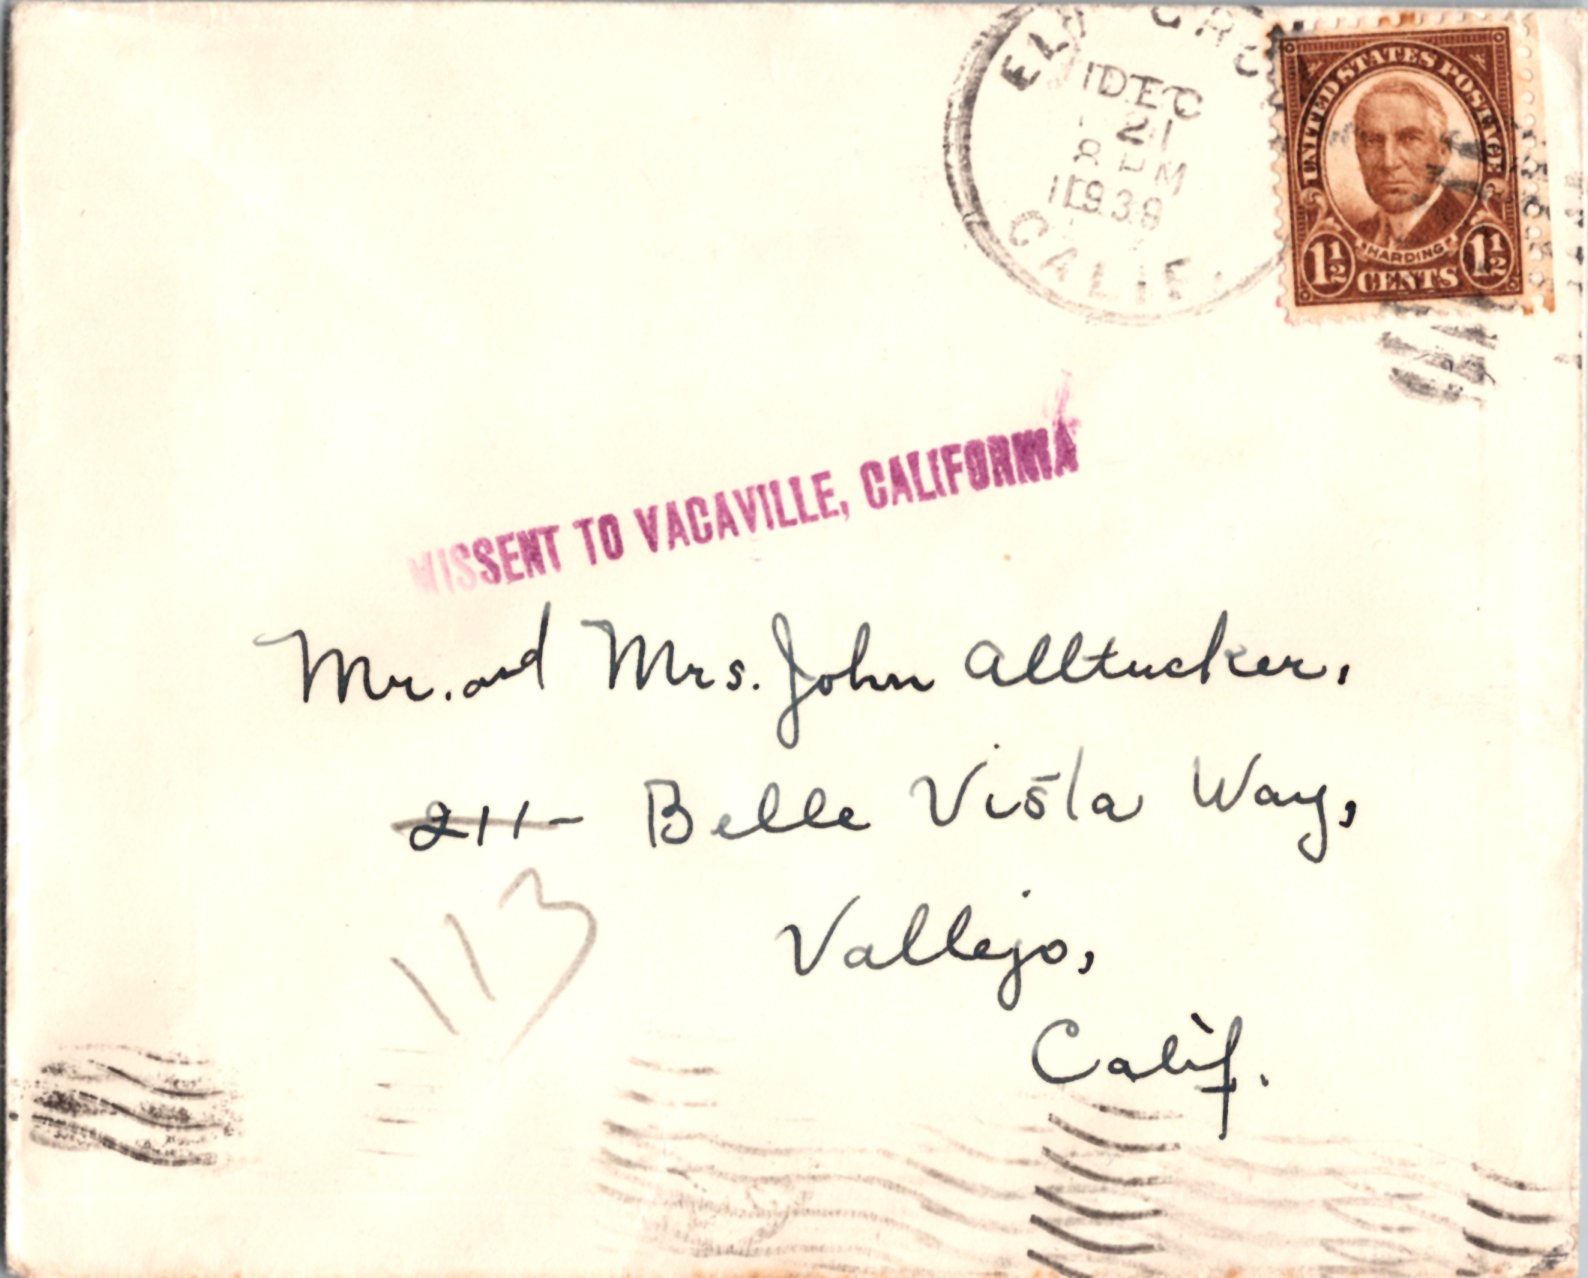 ELK GRO
DEC
21
8 PM
1939
CALIF.
UNITED STATES POSTAGE
HARDING
1½ CENTS 1½
MISSENT TO VACAVILLE, CALIFORNIA
Mr. and Mrs. John Alltucker,
211- Belle Vista Way,
113
Vallejo,
Calif.